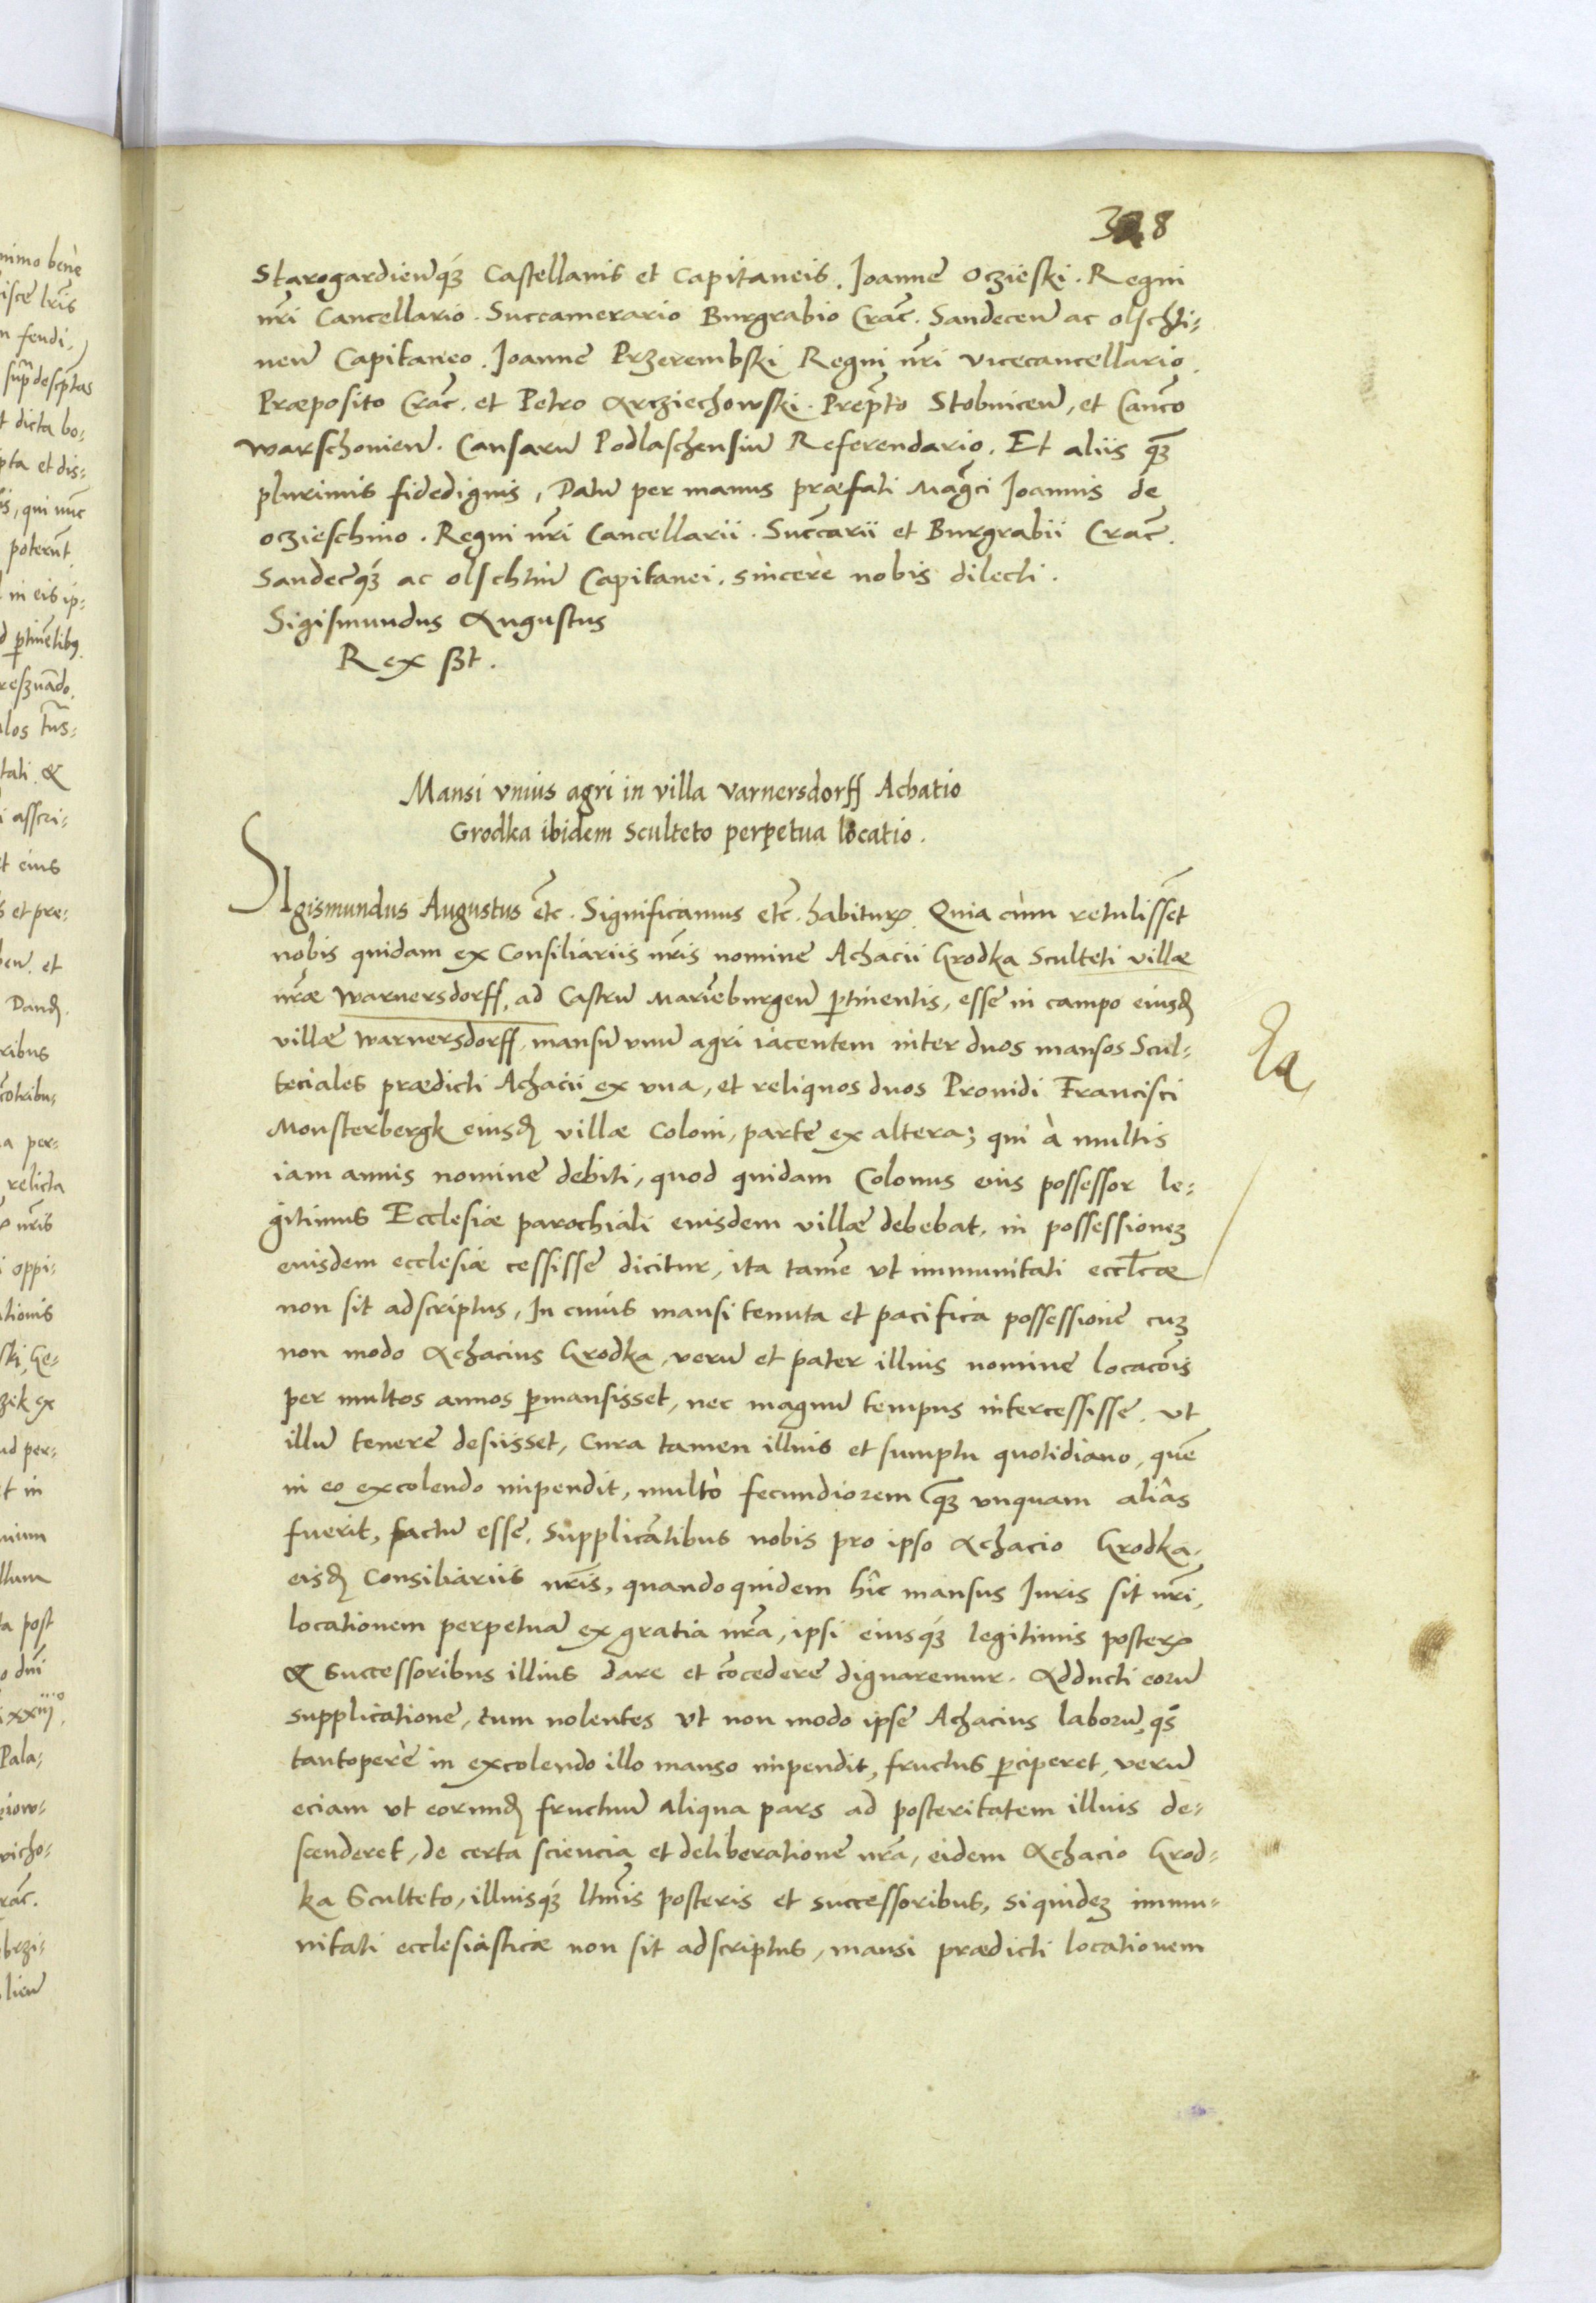 328
Starogardien̄q́ꝫ Castellanis et Capitaneis. Joanne Oczieski. Regni
nr̄i Cancellario. Succamerario Burgrabio Crac̄. Sandecen̄ ac olschti-
nen̄ Capitaneo. Joanne Przerembski Regni nr̄i vicecancellario.
Præposito Crac̄. et Petro Arcziechowski. Prep̄to Stobnicen̄, et Canc̄o
warschouien̄. Causarū Podlaschensiū Referendario. Et aliis q̄ꝫ
plurimis fidedignis, Datū per manus præfati Maḡci Joannis de
oczieschino. Regni nr̄i Cancellarii. Succ̄arii et Burgrabii Crac̄.
Sandec̄q́ꝫ ac olschtin̄ Capitanei. sincerè nobis dilecti.
Sigismundus Augustus
Rex ßt.
Mansi vnius agri in villa Varnersdorff Achatio
Grodka ibidem Sculteto perpetua locatio.
SIgismundus Augustus etc̄. Significamus etc̄. habituꝝ. Quia cùm retulisset̄
nobis quidam ex Consiliariis nr̄is nomine Achacii Grodka Sculteti villæ
nr̄æ Warnersdorff, ad Castrū Mariēburgen̄ ꝑtinentis, esse in campo eiusđ
villæ Warnersdorff, mansū vnū agri iacentem inter duos mansos Scul-
teciales prædicti Achacii ex vna, et reliquos duos Prouidi Francisci
Monsterbergk eiusđ villæ Coloni, parte ex altera; qui à multis
iam annis nomine debiti, quod quidam Colonus eius possessor le-
gitimus Ecclesiæ parochiali eiusdem villæ debebat, in possessioneꝫ
eiusdem ecclesiæ cessisse dicitur, ita tamē vt immunitati eccl̄cæ
non sit adscriptus, In cuius mansi tenuta et pacifica possessione cuꝫ
non modo Achacius Grodka, verū et pater illius nomine locac̄ōis
per multos annos ꝑmansisset, nec magnū tempus intercessisse, vt
illū tenere desiisset, Cura tamen illius et sumptu quotidiano, quē
in eo excolendo impendit, multò fecundiorem q̄ꝫ vnquam aliâs
fuerit, factū esse. Supplicātibus nobis pro ipso Achacio Grodka,
eisđ Consiliariis nr̄is, quandoquidem hîc mansus Juris sit nr̄i,
locationem perpetuā ex gratia nr̄a, ipsi eiusq́ꝫ legitimis posteꝝ
& Successoribus illius dare et cōcedere dignaremur. Adducti eorū
supplicatione, tum nolentes vt non modo ipse Achacius laborū, qs̄
tantoperè in excolendo illo manso impendit, fructus ꝑciperet, verū
eciam vt eorunđ fructuū aliqua pars ad posteritatem illius de-
scenderet, de certa sciencia et deliberatione nr̄a, eidem Achacio Grod-
ka Sculteto, illiusq́ꝫ ltm̄is posteris et successoribus, siquideꝫ immu-
nitati ecclesiasticæ non sit adscriptus, mansi prædicti locationem